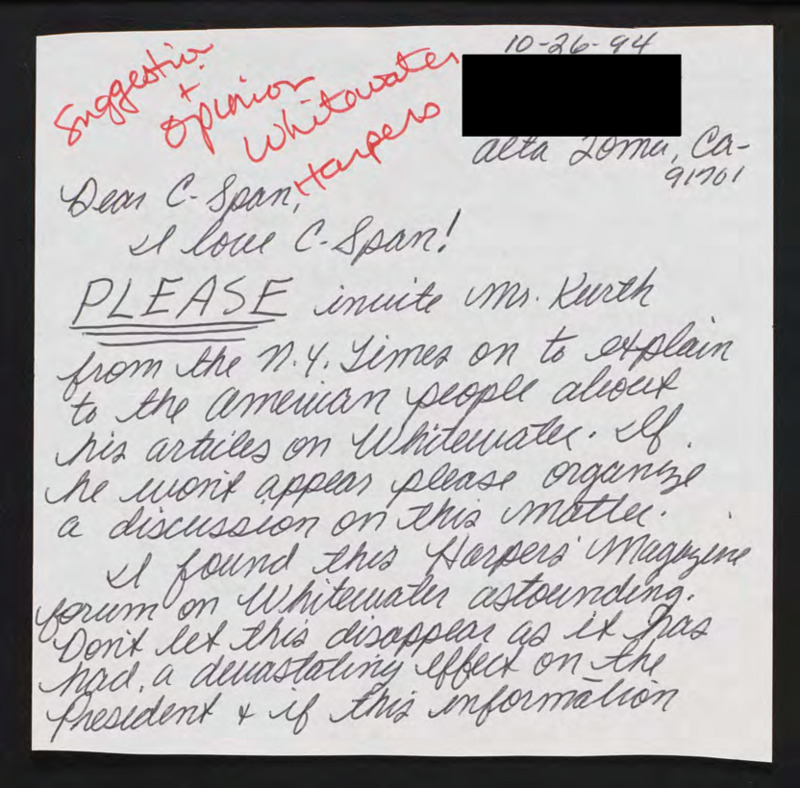 10-26-94
Suggestion
+
Opinion
Whitewater
Harpers
Alta Loma, Ca-
91701
Dear C-Span,
I love C-Span!
PLEASE invite Mr. Kurth
from the N.Y. Times on to explain
to the American people about
his articles on Whitewater. If
he won't appear please organize
a discussion on this matter.
I found this Harpers' Magazine
forum on Whitewater astounding.
Don't let this disappear as it has
had a devastating effect on the
President & if this information